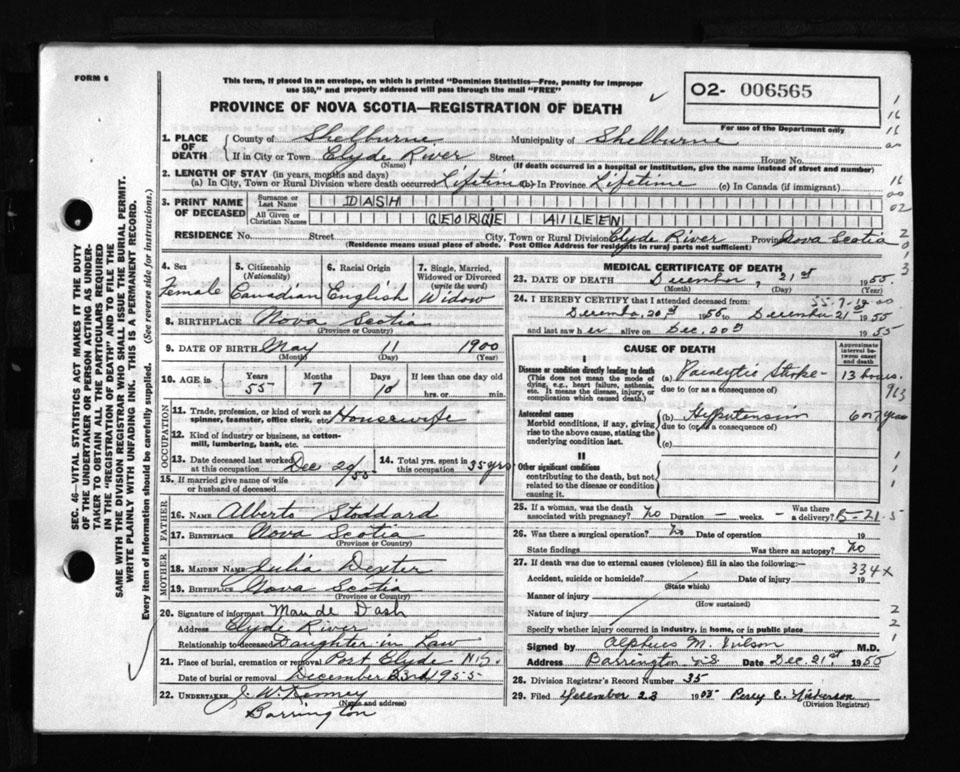 FORM 6
This form, if placed in an envelope, on which is printed "Dominion Statistics—Free, penalty for improper
use $50," and properly addressed will pass through the mail "FREE"
O2- 006565
For use of the Department only
PROVINCE OF NOVA SCOTIA—REGISTRATION OF DEATH
SEC. 46—VITAL STATISTICS ACT MAKES IT THE DUTY
OF THE UNDERTAKER OR PERSON ACTING AS UNDER-
TAKER TO OBTAIN ALL THE PARTICULARS REQUIRED
IN THE "REGISTRATION OF DEATH" AND TO FILE THE
SAME WITH THE DIVISION REGISTRAR WHO SHALL ISSUE THE BURIAL PERMIT.
WRITE PLAINLY WITH UNFADING INK. THIS IS A PERMANENT RECORD.
Every item of information should be carefully supplied. (See reverse side for instructions.)
1. PLACE OF DEATH County of Shelburne Municipality of Shelburne
If in City or Town Clyde River Street House No.
(Name) (If death occurred in a hospital or institution, give the name instead of street and number)
2. LENGTH OF STAY (in years, months and days)
(a) In City, Town or Rural Division where death occurred Lifetime (b) In Province Lifetime (c) In Canada (if immigrant)
3. PRINT NAME OF DECEASED Surname or Last Name DASH
All Given or Christian Names GEORGIE AILEEN
RESIDENCE No. Street City, Town or Rural Division Clyde River Province Nova Scotia
(Residence means usual place of abode. Post Office Address for rural parts not sufficient)
4. Sex Female
5. Citizenship (Nationality) Canadian
6. Racial Origin English
7. Single, Married, Widowed or Divorced (write the word) Widow
8. BIRTHPLACE Nova Scotia
(Province or Country)
9. DATE OF BIRTH May 11 1900
(Month) (Day) (Year)
10. AGE in Years Months Days If less than one day
55 7 10 hrs. or min.
OCCUPATION
11. Trade, profession, or kind of work as spinner, teamster, office clerk, etc. Housewife
12. Kind of industry or business, as cotton-mill, lumbering, bank, etc.
13. Date deceased last worked at this occupation Dec 20/55 14. Total yrs. spent in this occupation 35 yrs
15. If married give name of wife or husband of deceased
FATHER
16. NAME Alberto Stoddard
17. BIRTHPLACE Nova Scotia
(Province or Country)
MOTHER
18. MAIDEN NAME Julia Dexter
19. BIRTHPLACE Nova Scotia
(Province or Country)
20. Signature of informant Maude Dash
Address Clyde River
Relationship to deceased Daughter in Law
21. Place of burial, cremation or removal Port Clyde N.S.
Date of burial or removal December 23rd 1955
22. UNDERTAKER J. W. Kenney
(Name and address)
Barrington
MEDICAL CERTIFICATE OF DEATH
23. DATE OF DEATH December, 21st 1955
(Month) (Day) (Year)
24. I HEREBY CERTIFY that I attended deceased from:
December 20th 1955 to December 21st 1955
and last saw her alive on Dec. 20th 1955
CAUSE OF DEATH
Approximate interval between onset and death
I
Disease or condition directly leading to death
(This does not mean the mode of dying, e.g., heart failure, asthenia, etc. It means the disease, injury, or complication which caused death.)
(a) Paralytic Stroke - 13 hours.
due to (or as a consequence of)
Antecedent causes
Morbid conditions, if any, giving rise to the above cause, stating the underlying condition last.
(b) Hypertension 6 or 7 years
due to (or as a consequence of)
(c)
II
Other significant conditions
contributing to the death, but not related to the disease or condition causing it.
25. If a woman, was the death associated with pregnancy? No Duration — weeks. — Was there a delivery?
26. Was there a surgical operation? No Date of operation 19
State findings Was there an autopsy? No
27. If death was due to external causes (violence) fill in also the following:—
334X
Accident, suicide or homicide? Date of injury 19
(State which)
Manner of injury
(How sustained)
Nature of injury
Specify whether injury occurred in industry, in home, or in public place
Signed by Alpheus M. Wilson M.D.
Address Barrington N.S. Date Dec. 21st 1955
28. Division Registrar's Record Number 35
29. Filed December 23 1955 Percy E. Nickerson
(Division Registrar)